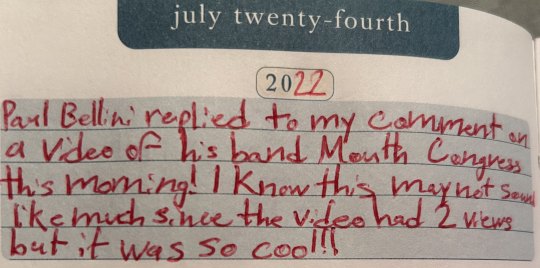 july twenty-fourth
2022
Paul Bellini replied to my comment on
a video of his band Mouth Congress
this morning! I know this may not sound
like much since the video had 2 views
but it was so cool!!!